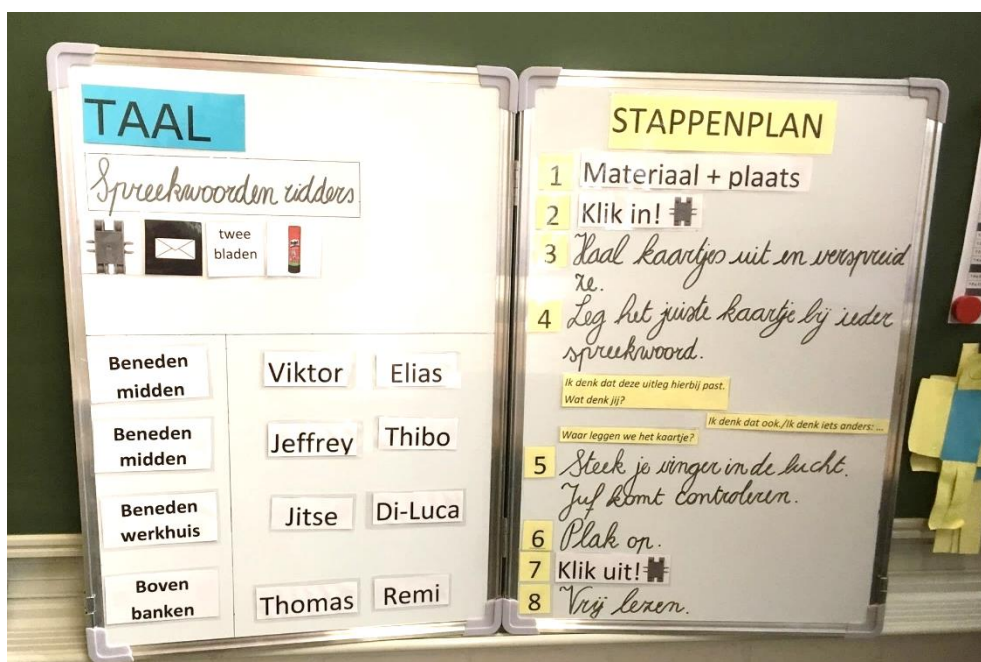 TAAL
Spreekwoorden ridders
twee
bladen
Beneden
midden
Viktor Elias
Beneden
midden
Jeffrey Thibo
Beneden
werkhuis
Jitse Di-Luca
Boven
banken
Thomas Remi
STAPPENPLAN
1 Materiaal + plaats
2 Klik in!
3 Haal kaartjes uit en verspreid
ze.
4 Leg het juiste kaartje bij ieder
spreekwoord.
Ik denk dat deze uitleg hierbij past.
Wat denk jij?
Ik denk dat ook./Ik denk iets anders: ...
Waar leggen we het kaartje?
5 Steek je vinger in de lucht.
Juf komt controleren.
6 Plak op.
7 Klik uit!
8 Vrij lezen.